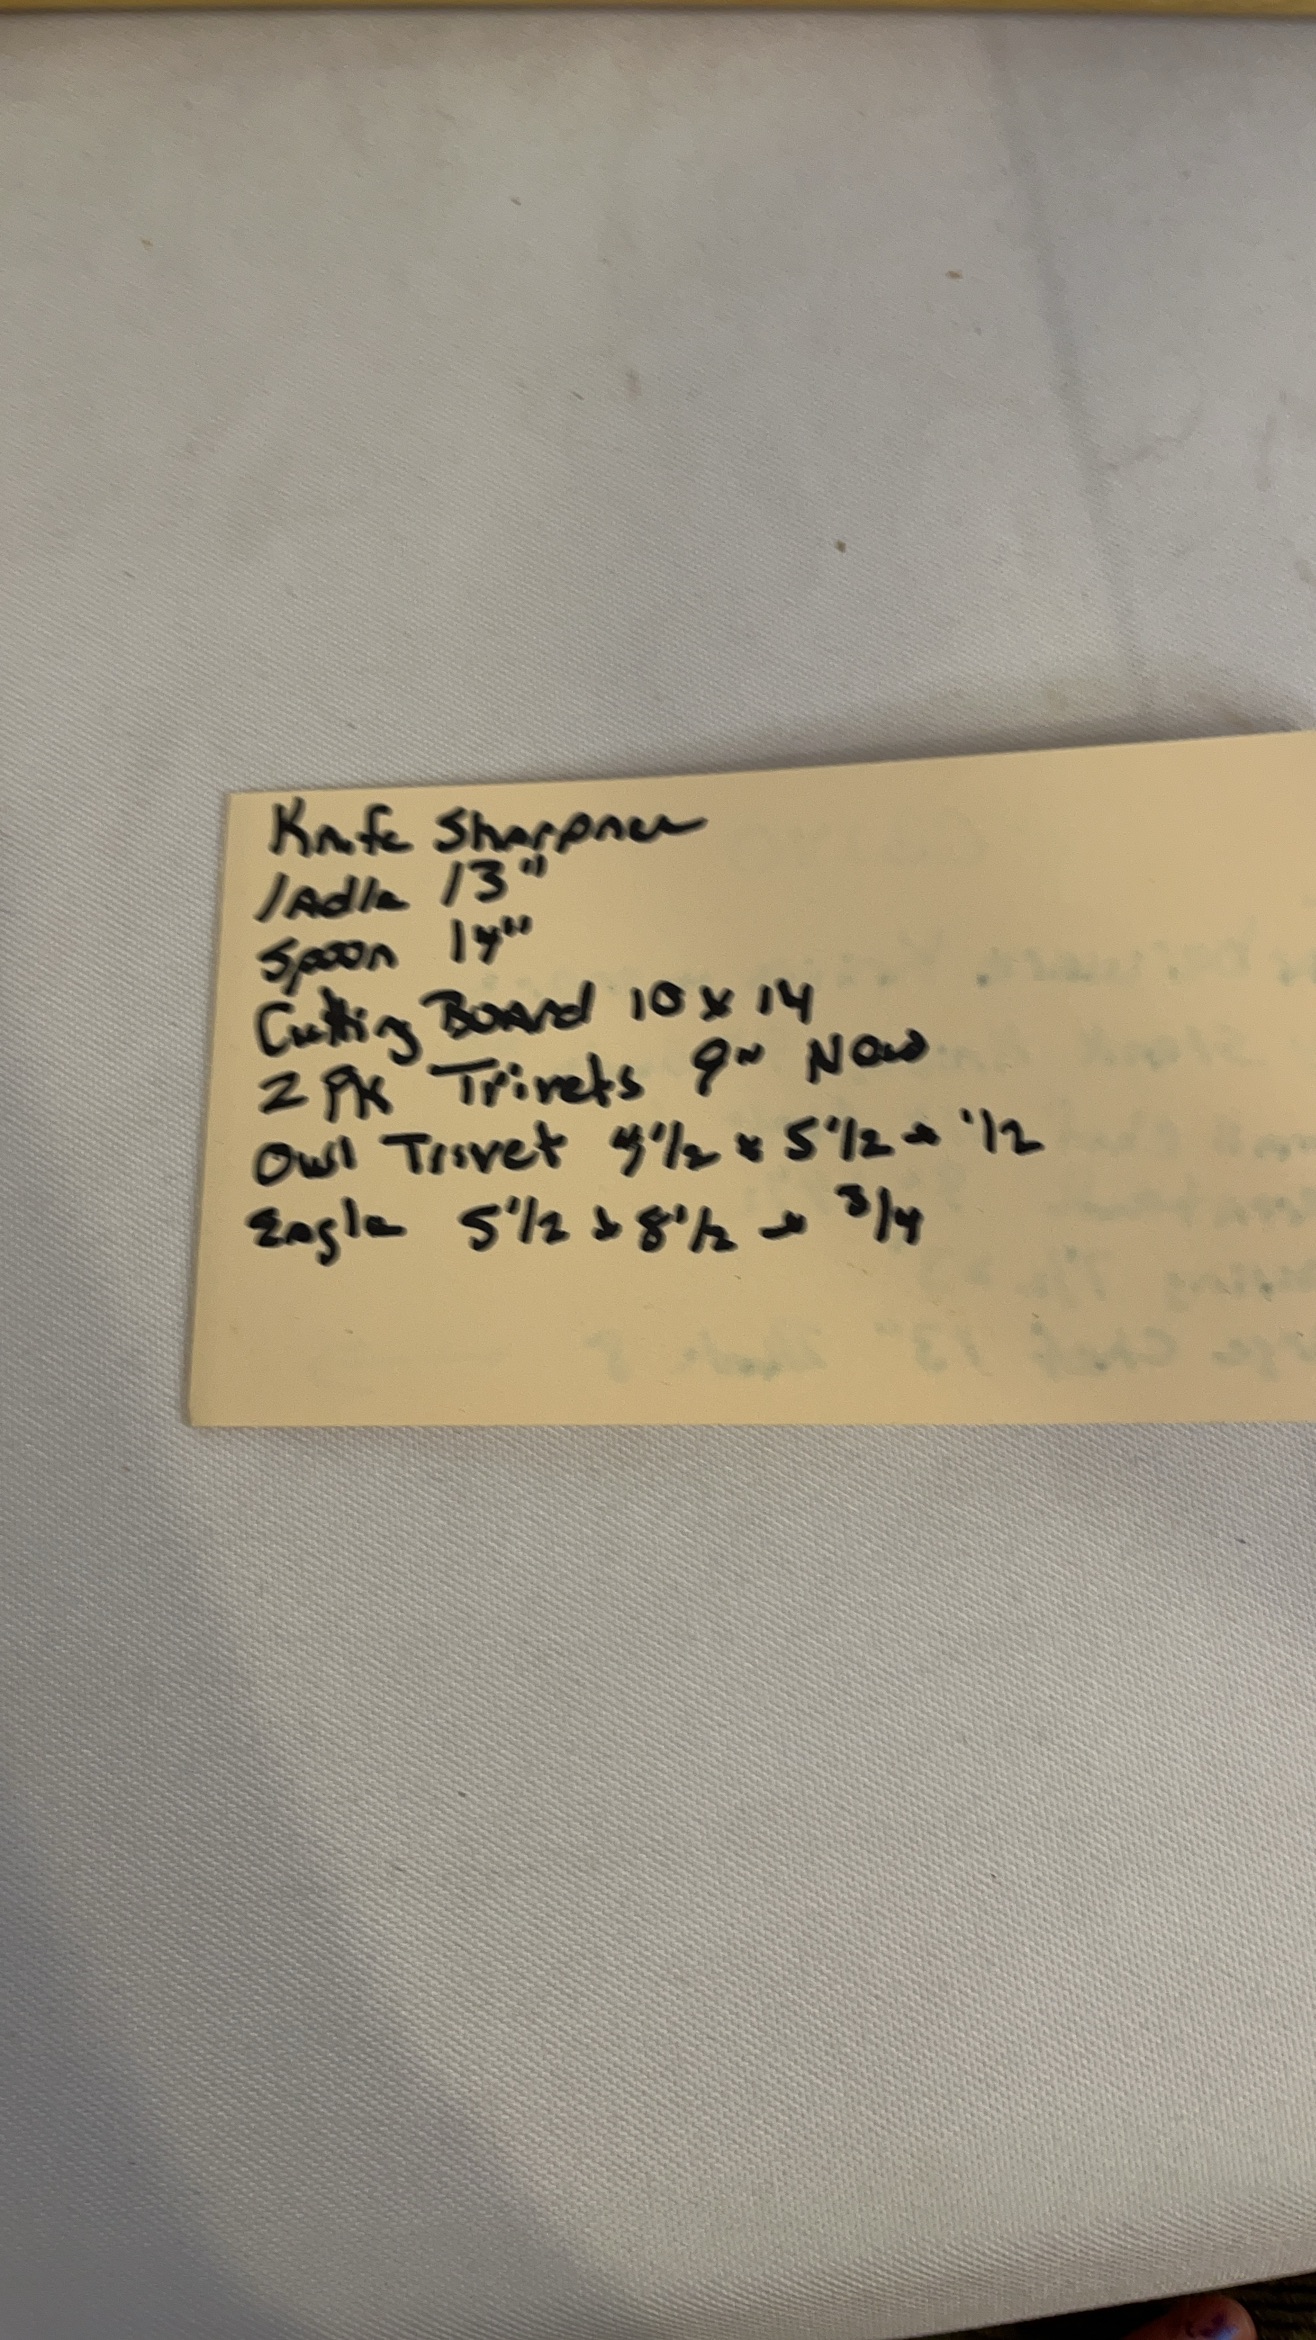 Knife Sharpner
ladle 13"
Spoon 14"
Cutting Board 10 x 14
2 PK Trivets 9" New
Owl Trivet 4 1/2 x 5 1/2 x 1/2
Eagle 5 1/2 x 8 1/2 x 3/4